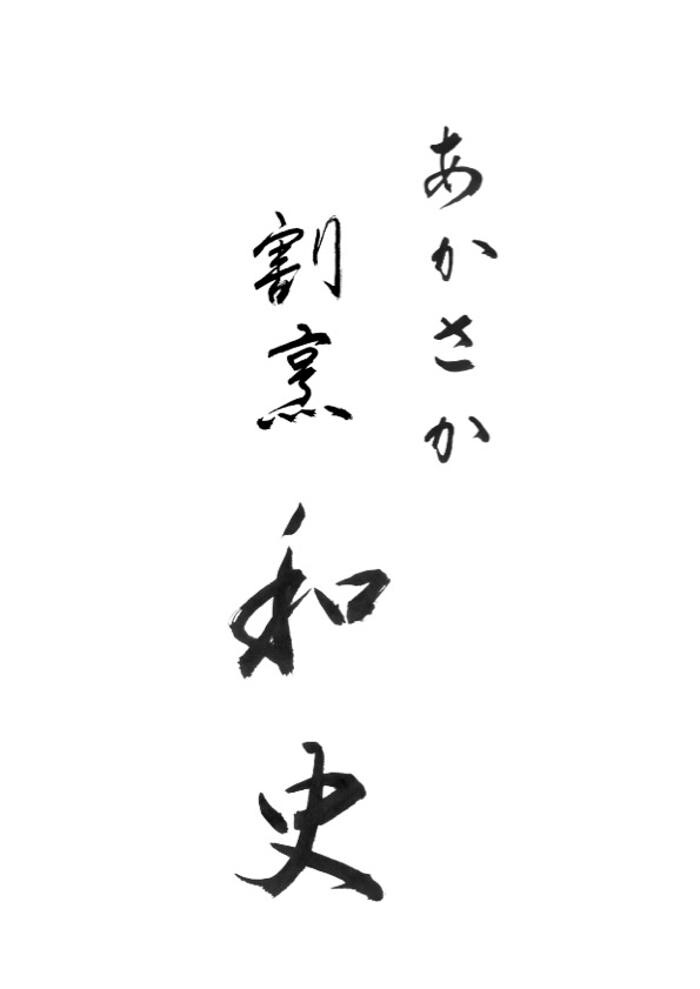 あかさか
割烹 和史